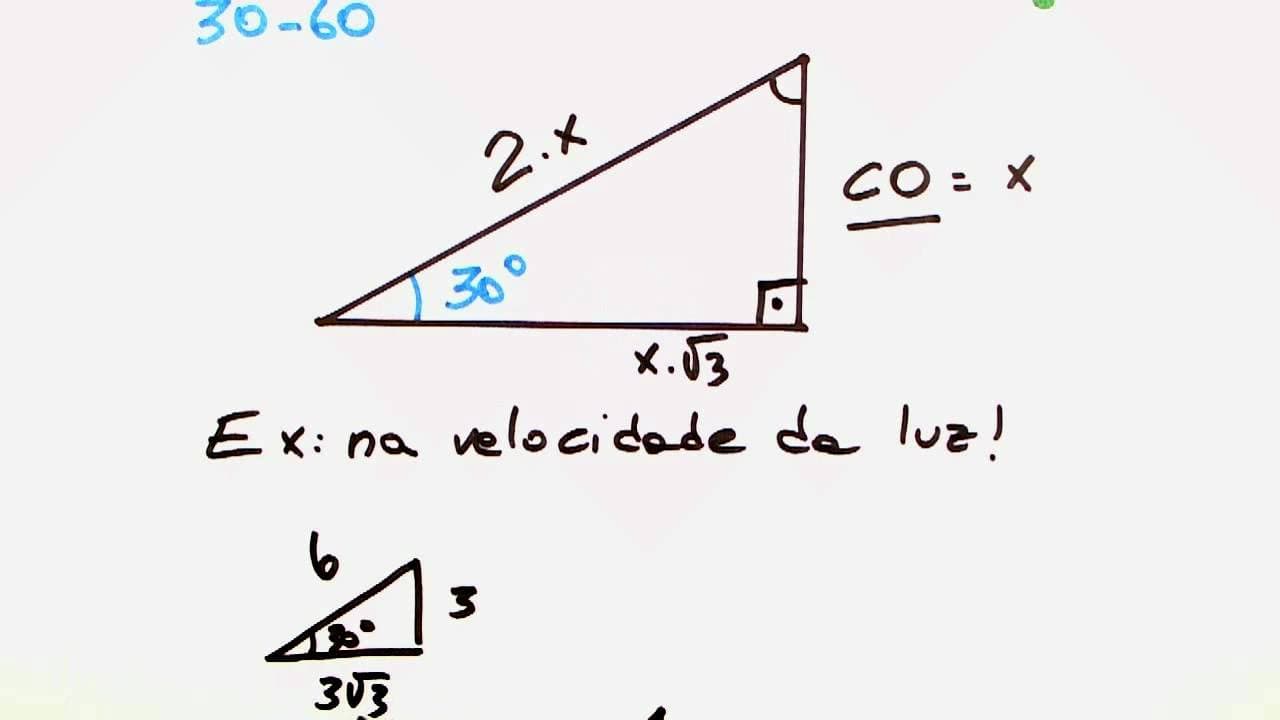 30-60
2.x
CO = x
30°
x.√3
Ex: na velocidade da luz!
6
3
30°
3√3